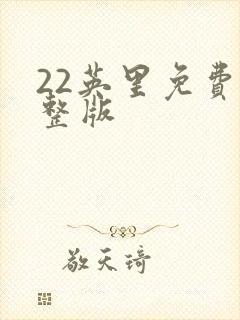 22英里免费
整版
敬天琦